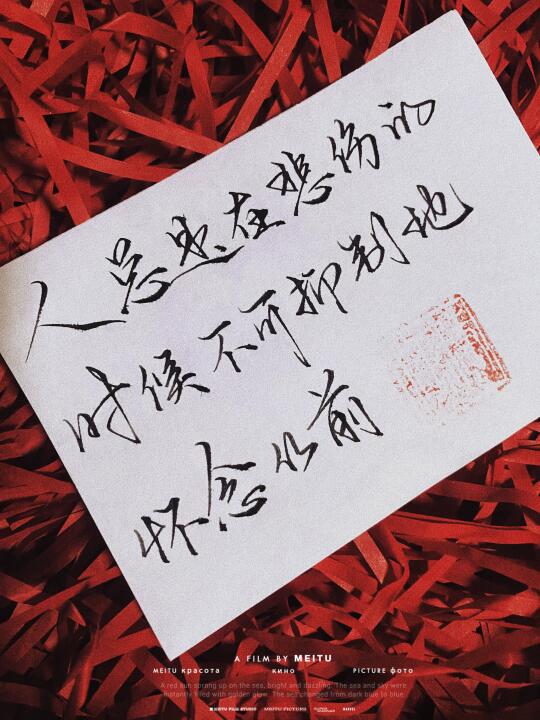 人总是在悲伤的
时候不可抑制地
怀念以前
A FILM BY MEITU
MEITU красота кино PICTURE фото
A red sun sprang up on the sea, bright and dazzling. The sea and sky were
instantly filled with golden glow. The sea changed from dark blue to blue
MEITU FILM STUDIO MEITU PICTURE